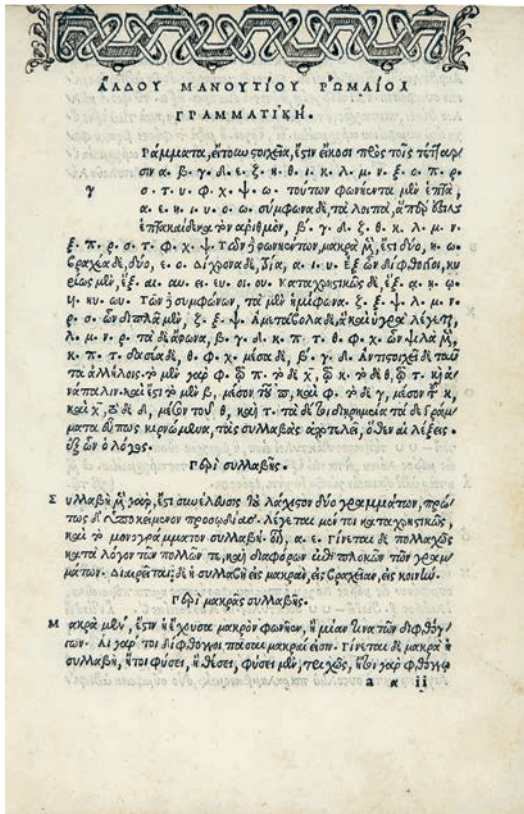 ΑΛΔΟΥ ΜΑΝΟΥΤΙΟΥ ΡΩΜΑΙΟΥ
ΓΡΑΜΜΑΤΙΚΗ.
Γράμματα, εἴτουν στοιχεῖα, ἔστιν εἴκοσι πρὸς τοῖς τέτταρ
σιν α. β. γ. δ. ε. ζ. η. θ. ι. κ. λ. μ. ν. ξ. ο. π. ρ.
γ σ. τ. υ. φ. χ. ψ. ω. τούτων φωνήεντα μὲν ἑπτά,
α. ε. η. ι. υ. ο. ω. σύμφωνα δὲ, τὰ λοιπά,
ἑπτακαίδεκα τὸν ἀριθμὸν, β. γ. δ. ζ. θ. κ. λ. μ. ν.
ξ. π. ρ. σ. τ. φ. χ. ψ. Τῶν φωνηέντων, μακρὰ μὲν, ἔστι δύο, η. ω.
βραχέα δὲ, δύο, ε. ο. Δίχρονα δὲ, τρία, α. ι. υ. ἐξ ὧν δίφθογγοι, κυ
ρίως μὲν, ἓξ. αι. αυ. ει. ευ. οι. ου. καταχρηστικῶς δὲ, ἓξ. ᾳ. ῃ. ῳ.
υι. ηυ. ωυ. Τῶν συμφώνων, τὰ μὲν ἡμίφωνα. ζ. ξ. ψ. λ. μ. ν.
ρ. σ. ὧν διπλᾶ μὲν, ζ. ξ. ψ. Ἀμετάβολα δὲ, ἃ καὶ ὑγρὰ λέγεται,
λ. μ. ν. ρ. τὰ δὲ ἄφωνα, β. γ. δ. κ. π. τ. θ. φ. χ. ὧν ψιλὰ μὲν,
κ. π. τ. δασέα δὲ, θ. φ. χ. μέσα δὲ, β. γ. δ. Ἀντιστοιχεῖ δὲ ταῦ
τα ἀλλήλοις. τὸ μὲν γὰρ φ. τῷ π. τὸ δὲ χ, τῷ κ. τὸ δὲ θ, τῷ τ. καὶ ἀ
νάπαλιν. καὶ ἔστι τὸ μὲν β, μέσον τοῦ π, καὶ φ. τὸ δὲ γ, μέσον τοῦ κ,
καὶ χ, τὸ δὲ δ, μέσον τοῦ θ, καὶ τ. τὰ δὲ γράμ
ματα οὕτως κιρνώμενα, τὰς συλλαβὰς ἀποτελεῖ, ὅθεν αἱ λέξεις.
ἐξ ὧν ὁ λόγος.
Περὶ συλλαβῆς.
Συλλαβὴ μὲν γὰρ, ἔστι συνέλευσις τοὐλάχιστον δύο γραμμάτων, πρώ
τως δὲ ὑποκείμενον προσῳδίας. λέγεται μέν τοι καταχρηστικῶς,
καὶ τὸ μονογράμματον συλλαβή. οἷον, α. ε. Γίνεται δὲ πολλαχῶς
κατὰ λόγον τῶν πολλῶν τε, καὶ διαφόρων περιπλοκῶν τῶν γραμ
μάτων. Διαιρεῖται δὲ ἡ συλλαβὴ εἰς μακρὰν, εἰς βραχεῖαν, εἰς κοινήν.
Περὶ μακρᾶς συλλαβῆς.
Μακρὰ μὲν, ἔστιν ἡ ἔχουσα μακρὸν φωνῆεν, ἢ μίαν τινὰ τῶν διφθόγ
γων. Αἱ γάρ τοι δίφθογγοι πᾶσαι μακραί εἰσιν. Γίνεται δὲ μακρὰ ἡ
συλλαβὴ, ἤτοι φύσει, ἢ θέσει, φύσει μὲν, τριχῶς, ἢ
a α ii